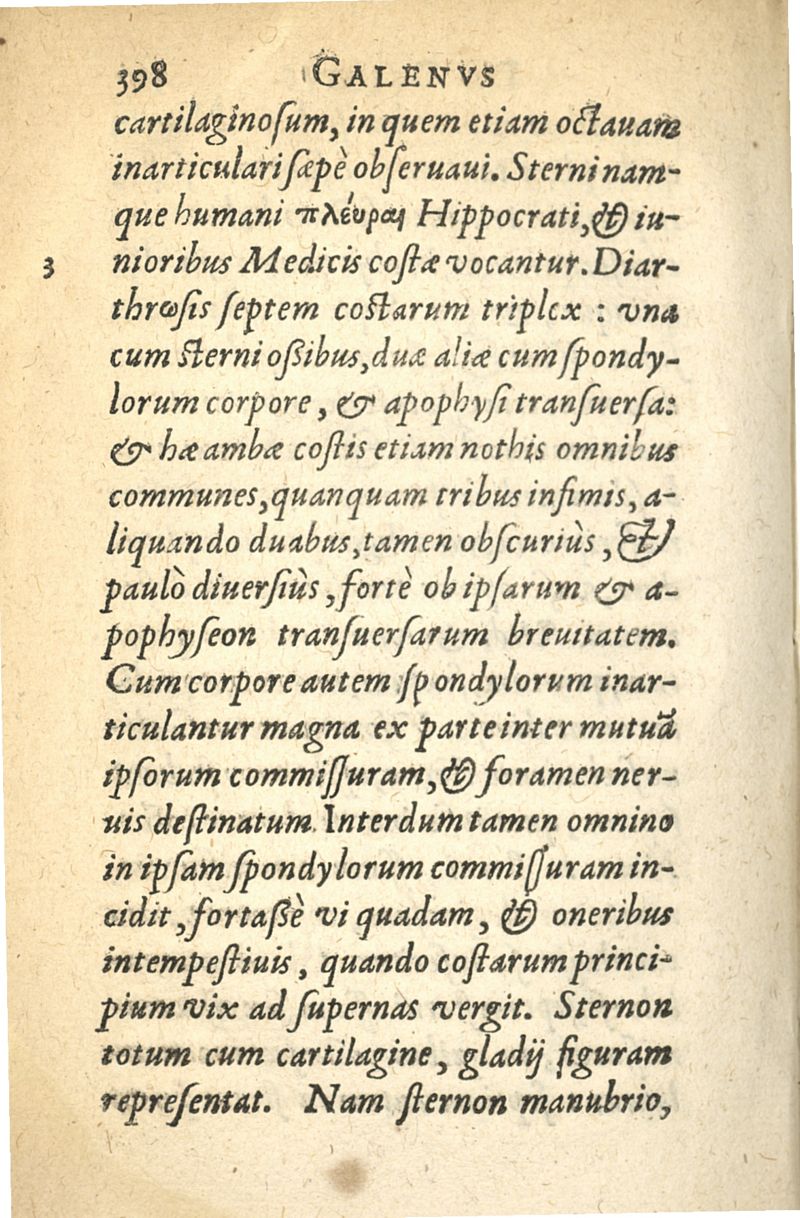 398 GALENVS
cartilaginoſum, in quem etiam octauam
inarticulari ſæpè obſeruaui. Sterni nam-
que humani πλέυραι Hippocrati, & iu-
3 nioribus Medicis coſtæ vocantur. Diar-
thrωſis ſeptem coſtarum triplex : vna
cum ſterni oſsibus, duæ aliæ cum ſpondy-
lorum corpore, & apophyſi tranſuerſa:
& hæ ambæ coſtis etiam nothis omnibus
communes, quanquam tribus infimis, a-
liquando duabus, tamen obſcuriùs, &
paulò diuerſiùs, fortè ob ipſarum & a-
pophyſeon tranſuerſarum breuitatem.
Cum corpore autem ſpondylorum inar-
ticulantur magna ex parte inter mutuã
ipſorum commiſſuram, & foramen ner-
uis deſtinatum. Interdum tamen omnino
in ipſam ſpondylorum commiſſuram in-
cidit, fortaſsè vi quadam, & oneribus
intempeſtiuis, quando coſtarum princi-
pium vix ad ſupernas vergit. Sternon
totum cum cartilagine, gladij figuram
repreſentat. Nam ſternon manubrio,